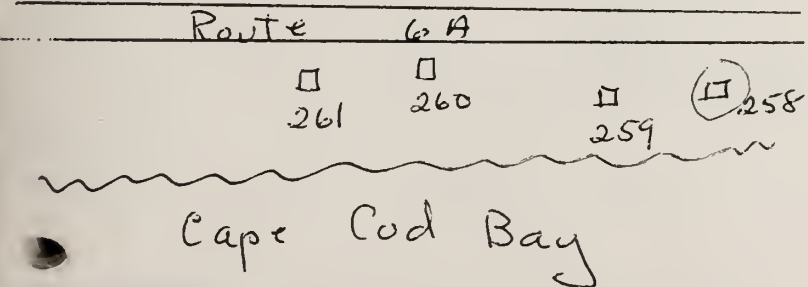 Route 6A
261 260 259 258
Cape Cod Bay